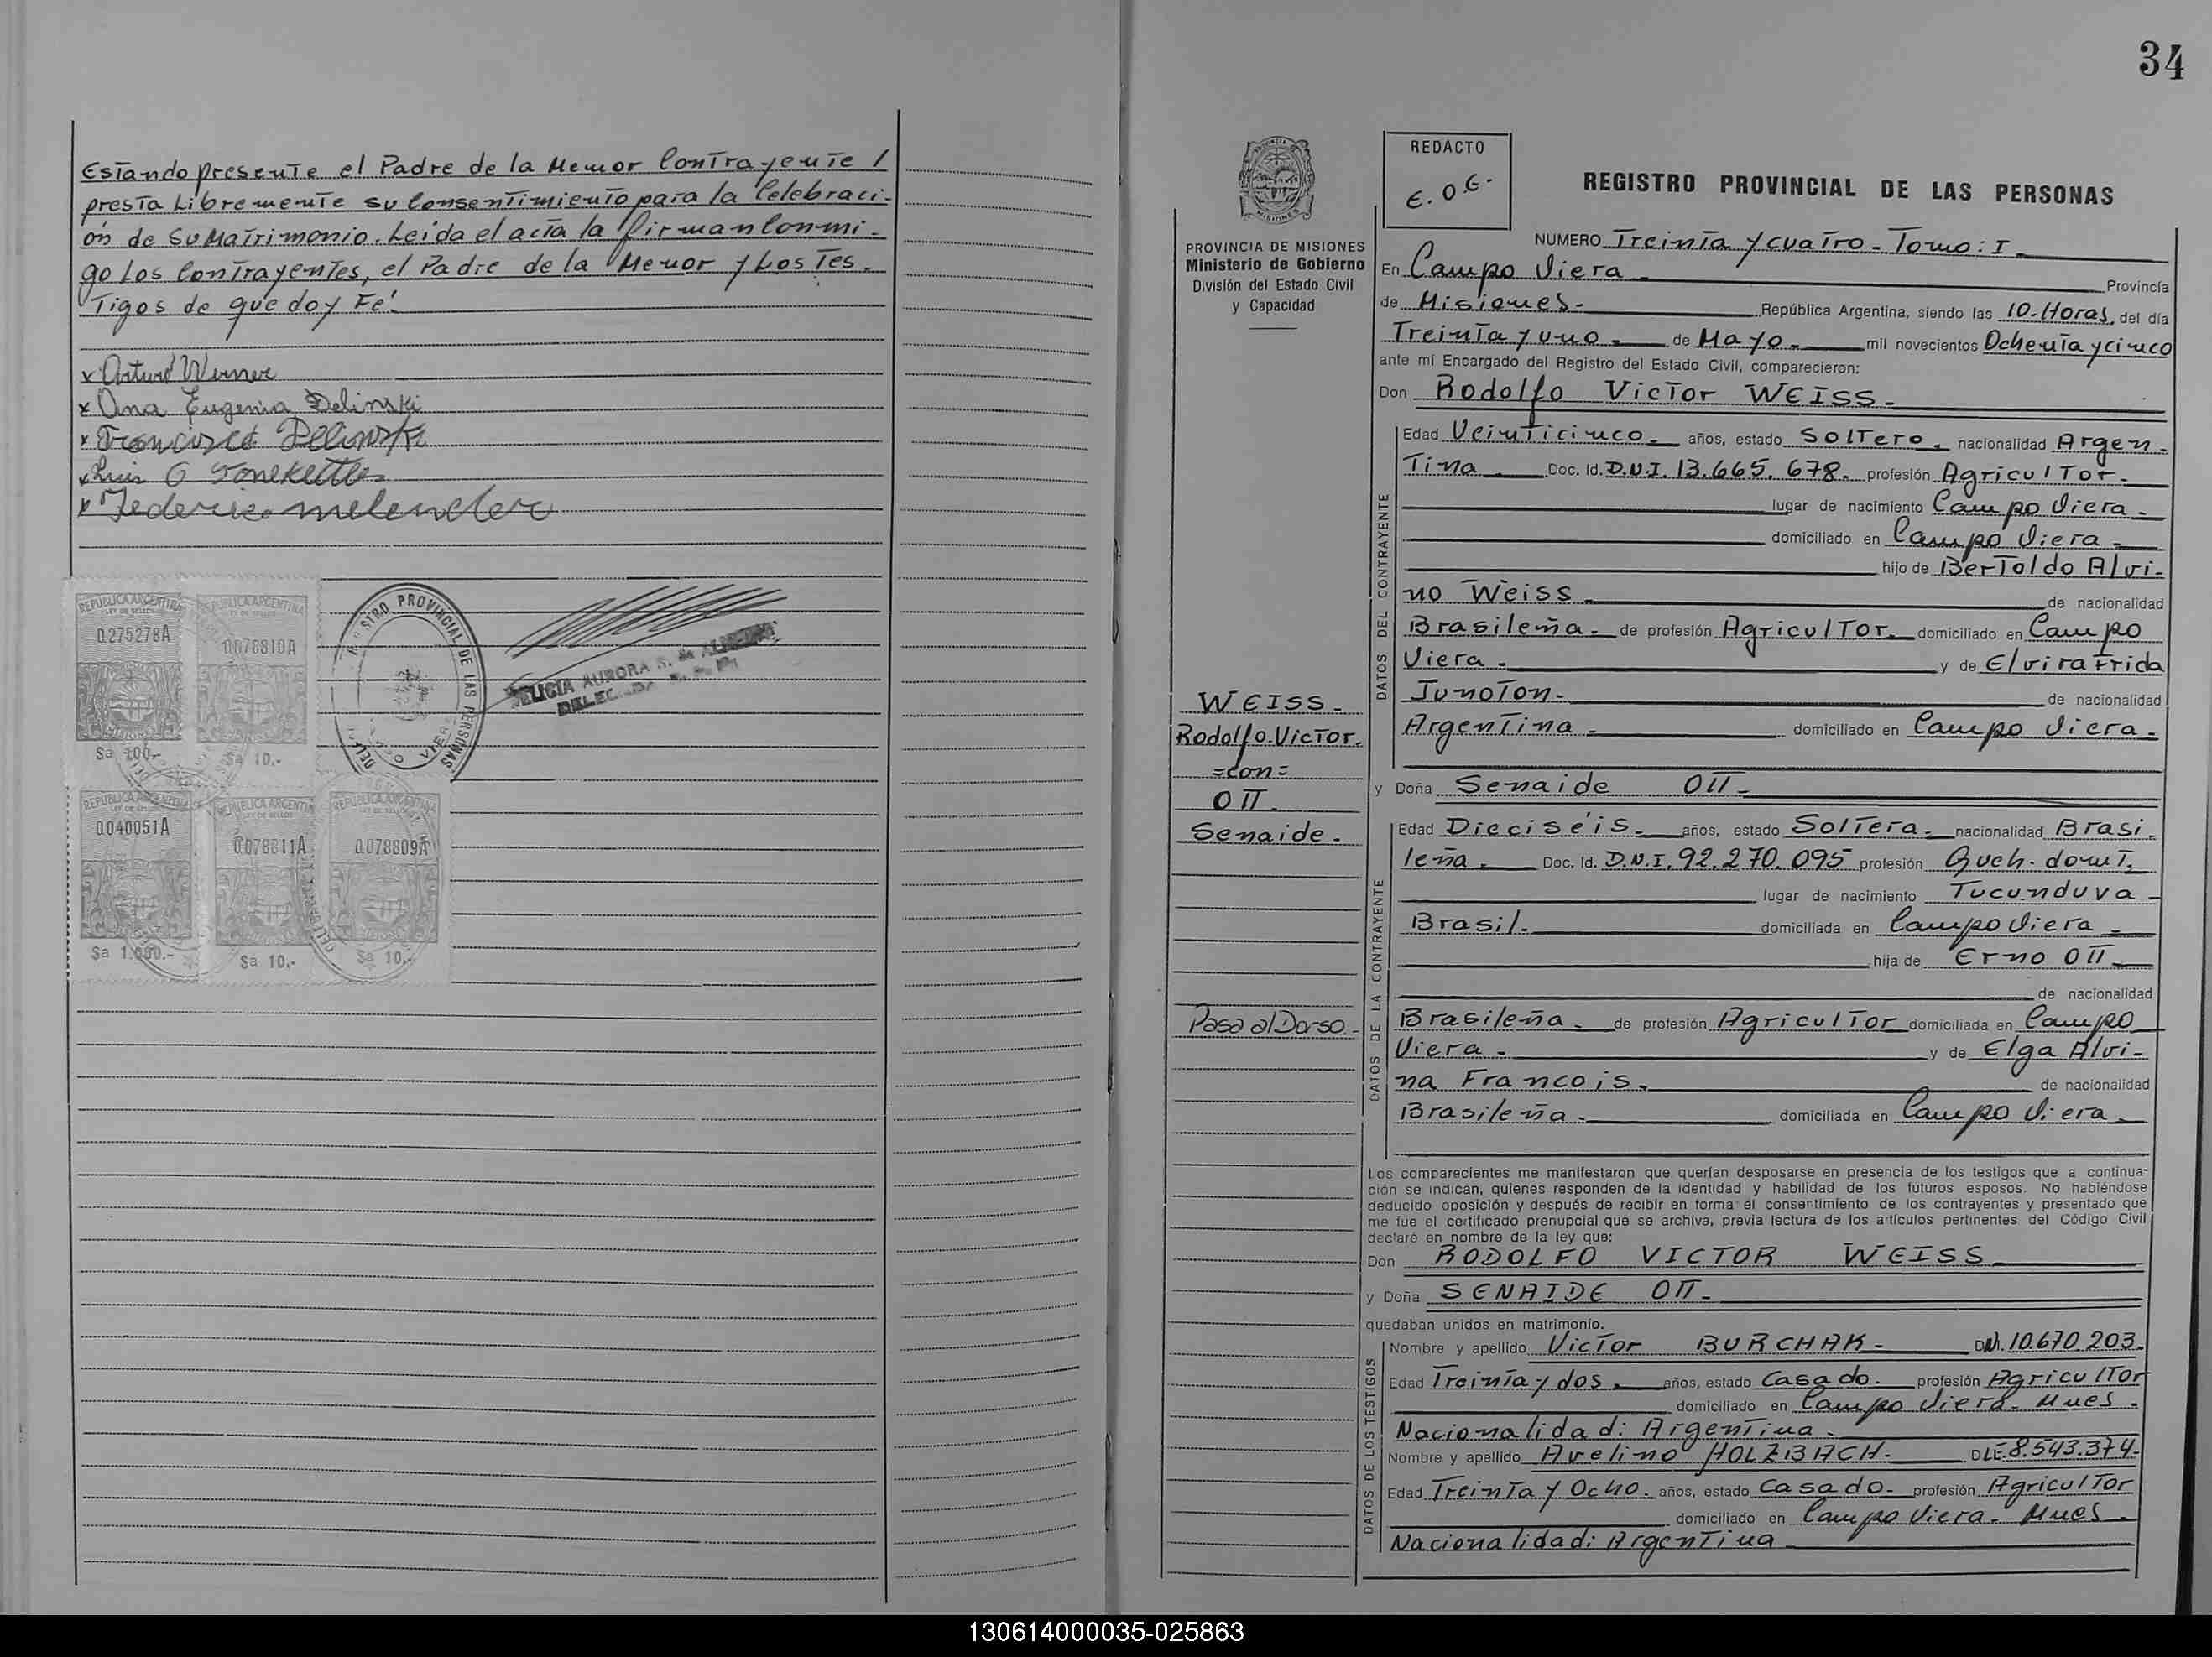 34
Estando presente el Padre de la Menor Contrayente /
presta Libremente su Consentimiento para la Celebraci-
ón de Su Matrimonio. Leida el acta la firman Conmi-
go Los Contrayentes, el Padre de la Menor y Los Tes-
Tigos de que doy Fé.
x Arturo Werner
x Ana Eugenia Delinski
x Francisco Delinski
x Luis G
x Federico
REPUBLICA ARGENTINA
LEY DE SELLOS
0.275278A
MISIONES
$a 100.-
REPUBLICA ARGENTINA
LEY DE SELLOS
0.078810A
$a 10.-
REPUBLICA ARGENTINA
LEY DE SELLOS
0.040051A
MISIONES
$a 1.000.-
REPUBLICA ARGENTINA
LEY DE SELLOS
0.078811A
MISIONES
$a 10.-
REPUBLICA ARGENTINA
LEY DE SELLOS
0.078809A
MISIONES
$a 10.-
REGISTRO PROVINCIAL DE LAS PERSONAS
FELICIA AURORA R. de
REDACTO
E.O.G.
MISIONES
PROVINCIA DE MISIONES
Ministerio de Gobierno
División del Estado Civil
y Capacidad
WEISS.
Rodolfo Victor.
=con=
OTT.
Senaide.
Pasa al Dorso.-
REGISTRO PROVINCIAL DE LAS PERSONAS
NUMERO Treinta y cuatro - Tomo: I.
En Campo Viera - Provincia
de Misiones.- República Argentina, siendo las 10.Horas. del día
Treinta y uno.- de Mayo.- mil novecientos Ochenta y cinco
ante mí Encargado del Registro del Estado Civil, comparecieron:
Don Rodolfo Victor WEISS.-
DATOS DEL CONTRAYENTE
Edad Veinticinco.- años, estado Soltero.- nacionalidad Argen-
Tina.- Doc. Id. D.N.I. 13.665.678.- profesión Agricultor.-
lugar de nacimiento Campo Viera.-
domiciliado en Campo Viera.-
hijo de Bertoldo Alvi-
no Weiss.- de nacionalidad
Brasileña.- de profesión Agricultor.- domiciliado en Campo
Viera.- y de Elvira Frida
Junoton.- de nacionalidad
Argentina.- domiciliado en Campo Viera.-
y Doña Senaide OTT.-
DATOS DE LA CONTRAYENTE
Edad Dieciséis.- años, estado Soltera.- nacionalidad Brasi-
leña.- Doc. Id. D.N.I. 92.270.095 profesión Queh. domt.
lugar de nacimiento Tucunduva -
Brasil.- domiciliada en Campo Viera.-
hija de Erno OTT.-
de nacionalidad
Brasileña.- de profesión Agricultor domiciliada en Campo
Viera.- y de Elga Alvi-
na Francois.- de nacionalidad
Brasileña.- domiciliada en Campo Viera.-
Los comparecientes me manifestaron que querían desposarse en presencia de los testigos que a continua-
ción se indican, quienes responden de la identidad y habilidad de los futuros esposos. No habiéndose
deducido oposición y después de recibir en forma el consentimiento de los contrayentes y presentado que
me fue el certificado prenupcial que se archiva, previa lectura de los artículos pertinentes del Código Civil
declaré en nombre de la ley que:
Don RODOLFO VICTOR WEISS.-
y Doña SENAIDE OTT.-
quedaban unidos en matrimonio.
DATOS DE LOS TESTIGOS
Nombre y apellido Victor BURCHAK.- DNI. 10.670.203.
Edad Treinta y dos.- años, estado Casado.- profesión Agricultor
domiciliado en Campo Viera - Mnes.-
Nacionalidad: Argentina.-
Nombre y apellido Avelino HOLZBACH.- DLE. 8.543.374.
Edad Treinta y Ocho.- años, estado Casado.- profesión Agricultor
domiciliado en Campo Viera.- Mnes.-
Nacionalidad: Argentina
130614000035-025863